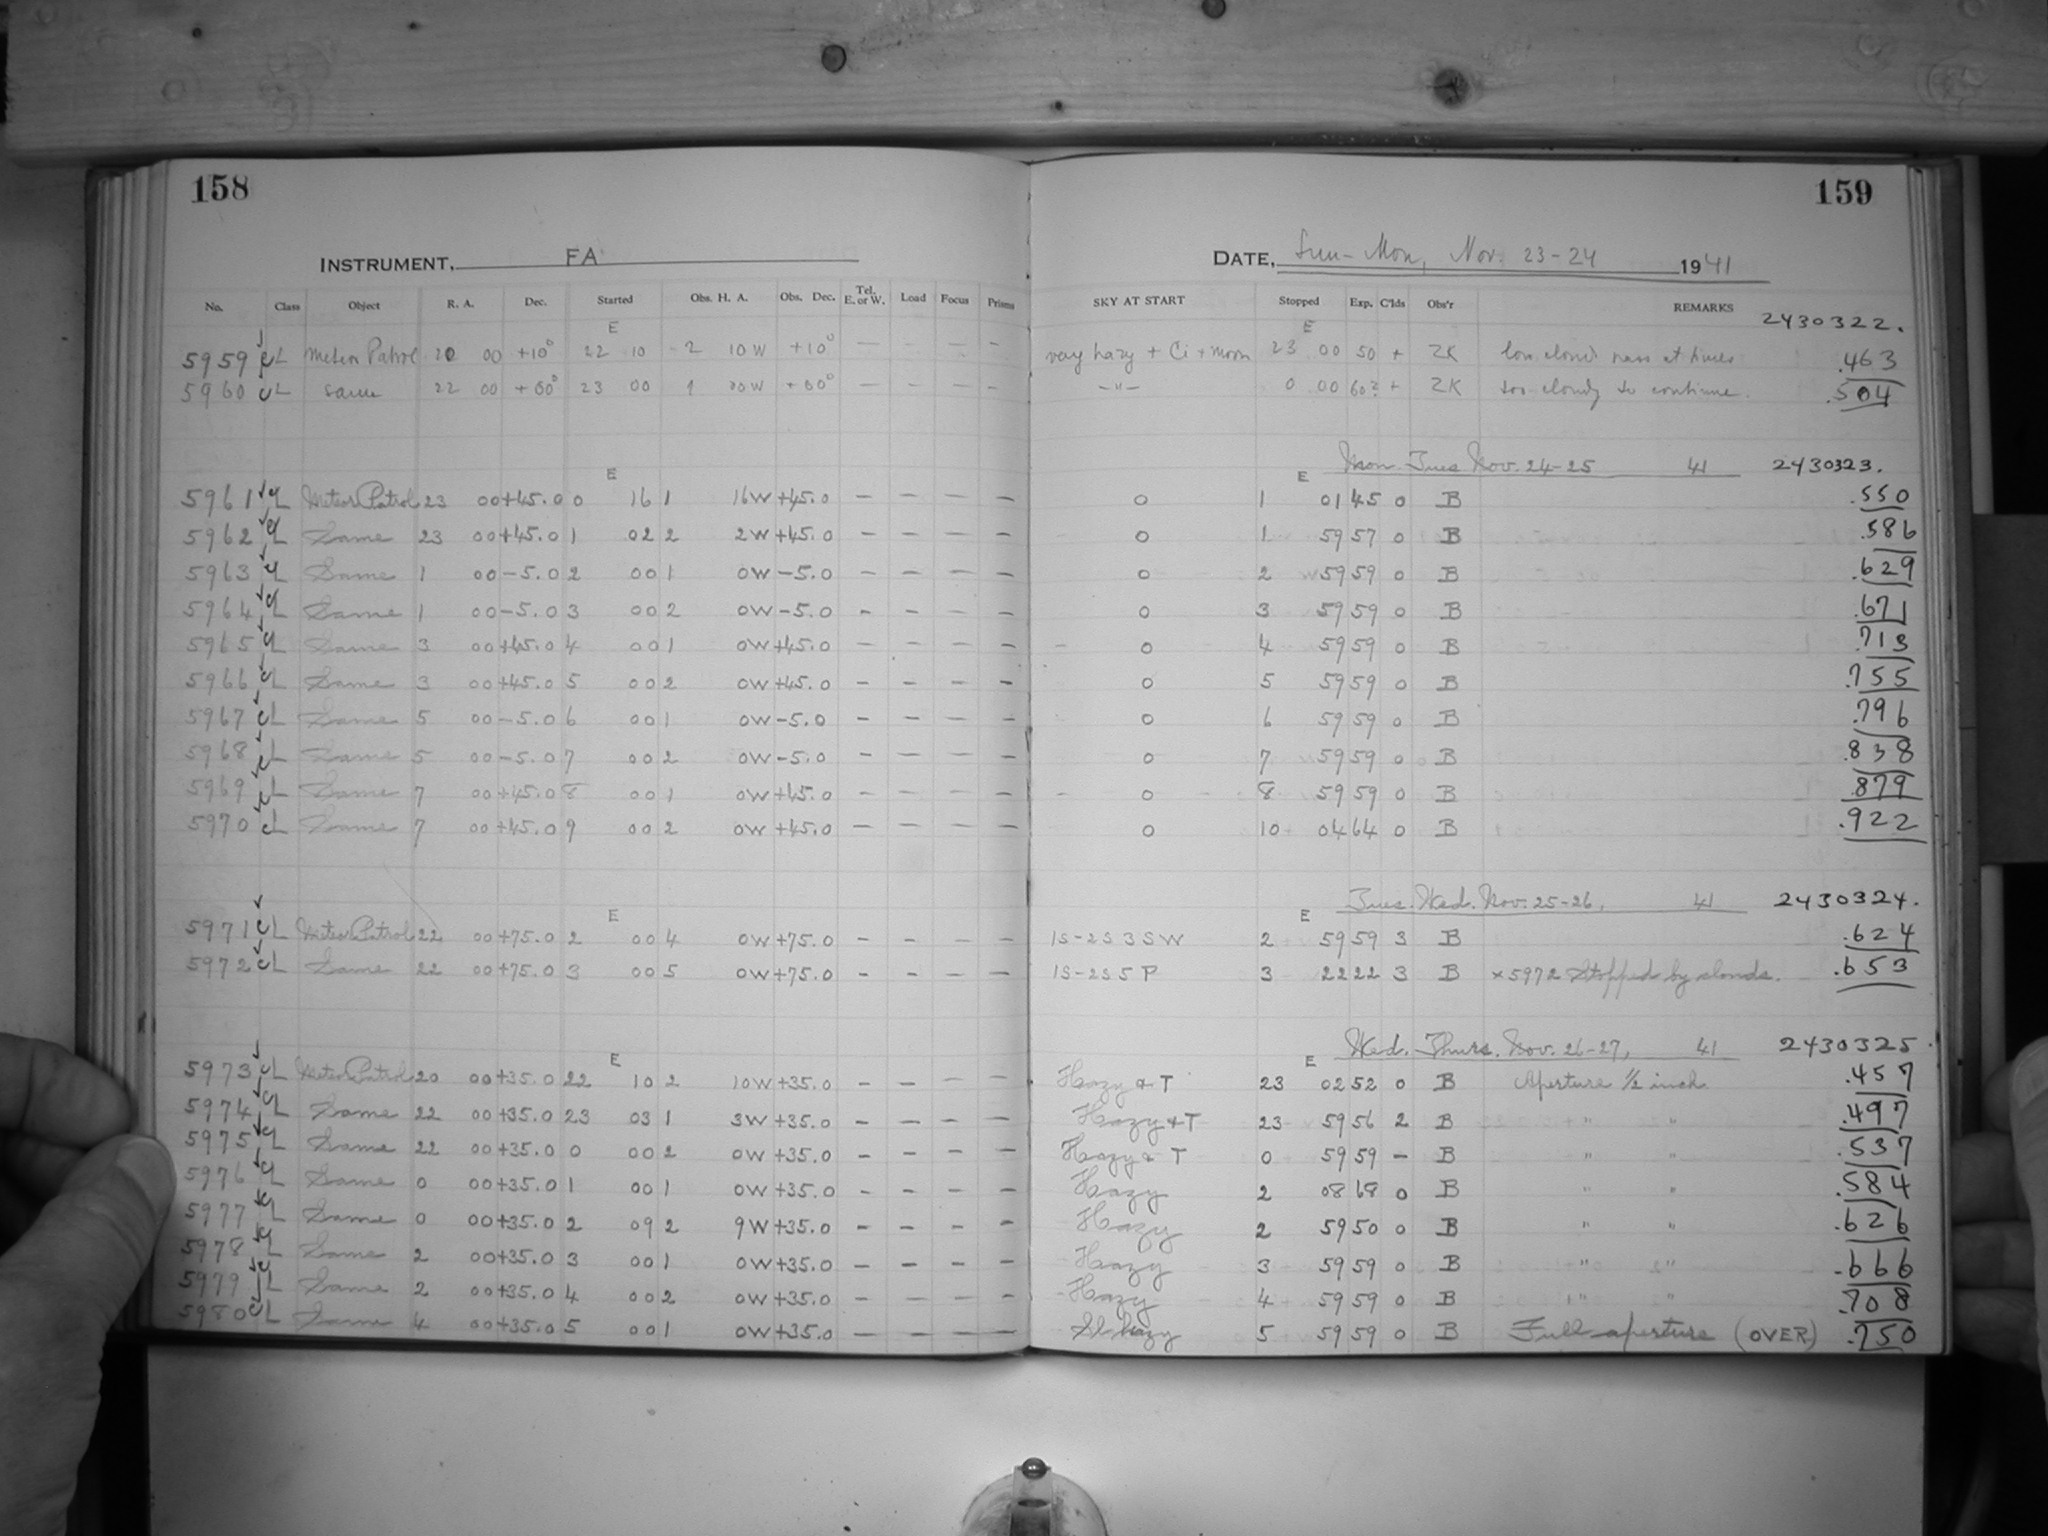 158
INSTRUMENT, FA
No. Class Object R. A. Dec. Started Obs. H. A. Obs. Dec. Tel. E. or W. Load Focus Prisms
E
5959 CL Meteor Patrol 20 00 +10° 22 10 2 10W +10° — — — —
5960 CL same 22 00 +60° 23 00 1 00W +60° — — — —
E
5961 CL Meteor Patrol 23 00 +45.0 0 16 1 16W +45.0 — — — —
5962 CL Same 23 00 +45.0 1 02 2 2W +45.0 — — — —
5963 CL Same 1 00 -5.0 2 00 1 0W -5.0 — — — —
5964 CL Same 1 00 -5.0 3 00 2 0W -5.0 — — — —
5965 CL Same 3 00 +45.0 4 00 1 0W +45.0 — — — —
5966 CL Same 3 00 +45.0 5 00 2 0W +45.0 — — — —
5967 CL Same 5 00 -5.0 6 00 1 0W -5.0 — — — —
5968 CL Same 5 00 -5.0 7 00 2 0W -5.0 — — — —
5969 CL Same 7 00 +45.0 8 00 1 0W +45.0 — — — —
5970 CL Same 7 00 +45.0 9 00 2 0W +45.0 — — — —
E
5971 CL Meteor Patrol 22 00 +75.0 2 00 4 0W +75.0 — — — —
5972 CL Same 22 00 +75.0 3 00 5 0W +75.0 — — — —
E
5973 CL Meteor Patrol 20 00 +35.0 22 10 2 10W +35.0 — — — —
5974 CL Same 22 00 +35.0 23 03 1 3W +35.0 — — — —
5975 CL Same 22 00 +35.0 0 00 2 0W +35.0 — — — —
5976 CL Same 0 00 +35.0 1 00 1 0W +35.0 — — — —
5977 CL Same 0 00 +35.0 2 09 2 9W +35.0 — — — —
5978 CL Same 2 00 +35.0 3 00 1 0W +35.0 — — — —
5979 CL Same 2 00 +35.0 4 00 2 0W +35.0 — — — —
5980 CL Same 4 00 +35.0 5 00 1 0W +35.0 — — — —
159
DATE, Sun-Mon, Nov. 23-24 1941
SKY AT START Stopped Exp. C'lds Obs'r REMARKS
E 2430322.
very hazy + Ci + moon 23 00 50 + ZK low clouds pass at times .463
-"- 0 00 60? + ZK too cloudy to continue. .504
E Mon. Tues Nov. 24-25 41 2430323.
0 1 01 45 0 B .550
0 1 59 57 0 B .586
0 2 59 59 0 B .629
0 3 59 59 0 B .671
0 4 59 59 0 B .713
0 5 59 59 0 B .755
0 6 59 59 0 B .796
0 7 59 59 0 B .838
0 8 59 59 0 B .879
0 10 04 64 0 B .922
E Tues. Wed. Nov. 25-26, 41 2430324.
1S-2S 3 SW 2 59 59 3 B .624
1S-2S 5 P 3 22 22 3 B x5972 Stopped by clouds. .653
E Wed. Thurs. Nov. 26-27, 41 2430325.
Hazy & T 23 02 52 0 B Aperture 1/2 inch .457
Hazy & T 23 59 56 2 B " " .497
Hazy & T 0 59 59 — B " " .537
Hazy 2 08 68 0 B " " .584
Hazy 2 59 50 0 B " " .626
Hazy 3 59 59 0 B " " .666
Hazy 4 59 59 0 B " " .708
Sl hazy 5 59 59 0 B Full aperture (OVER) .750